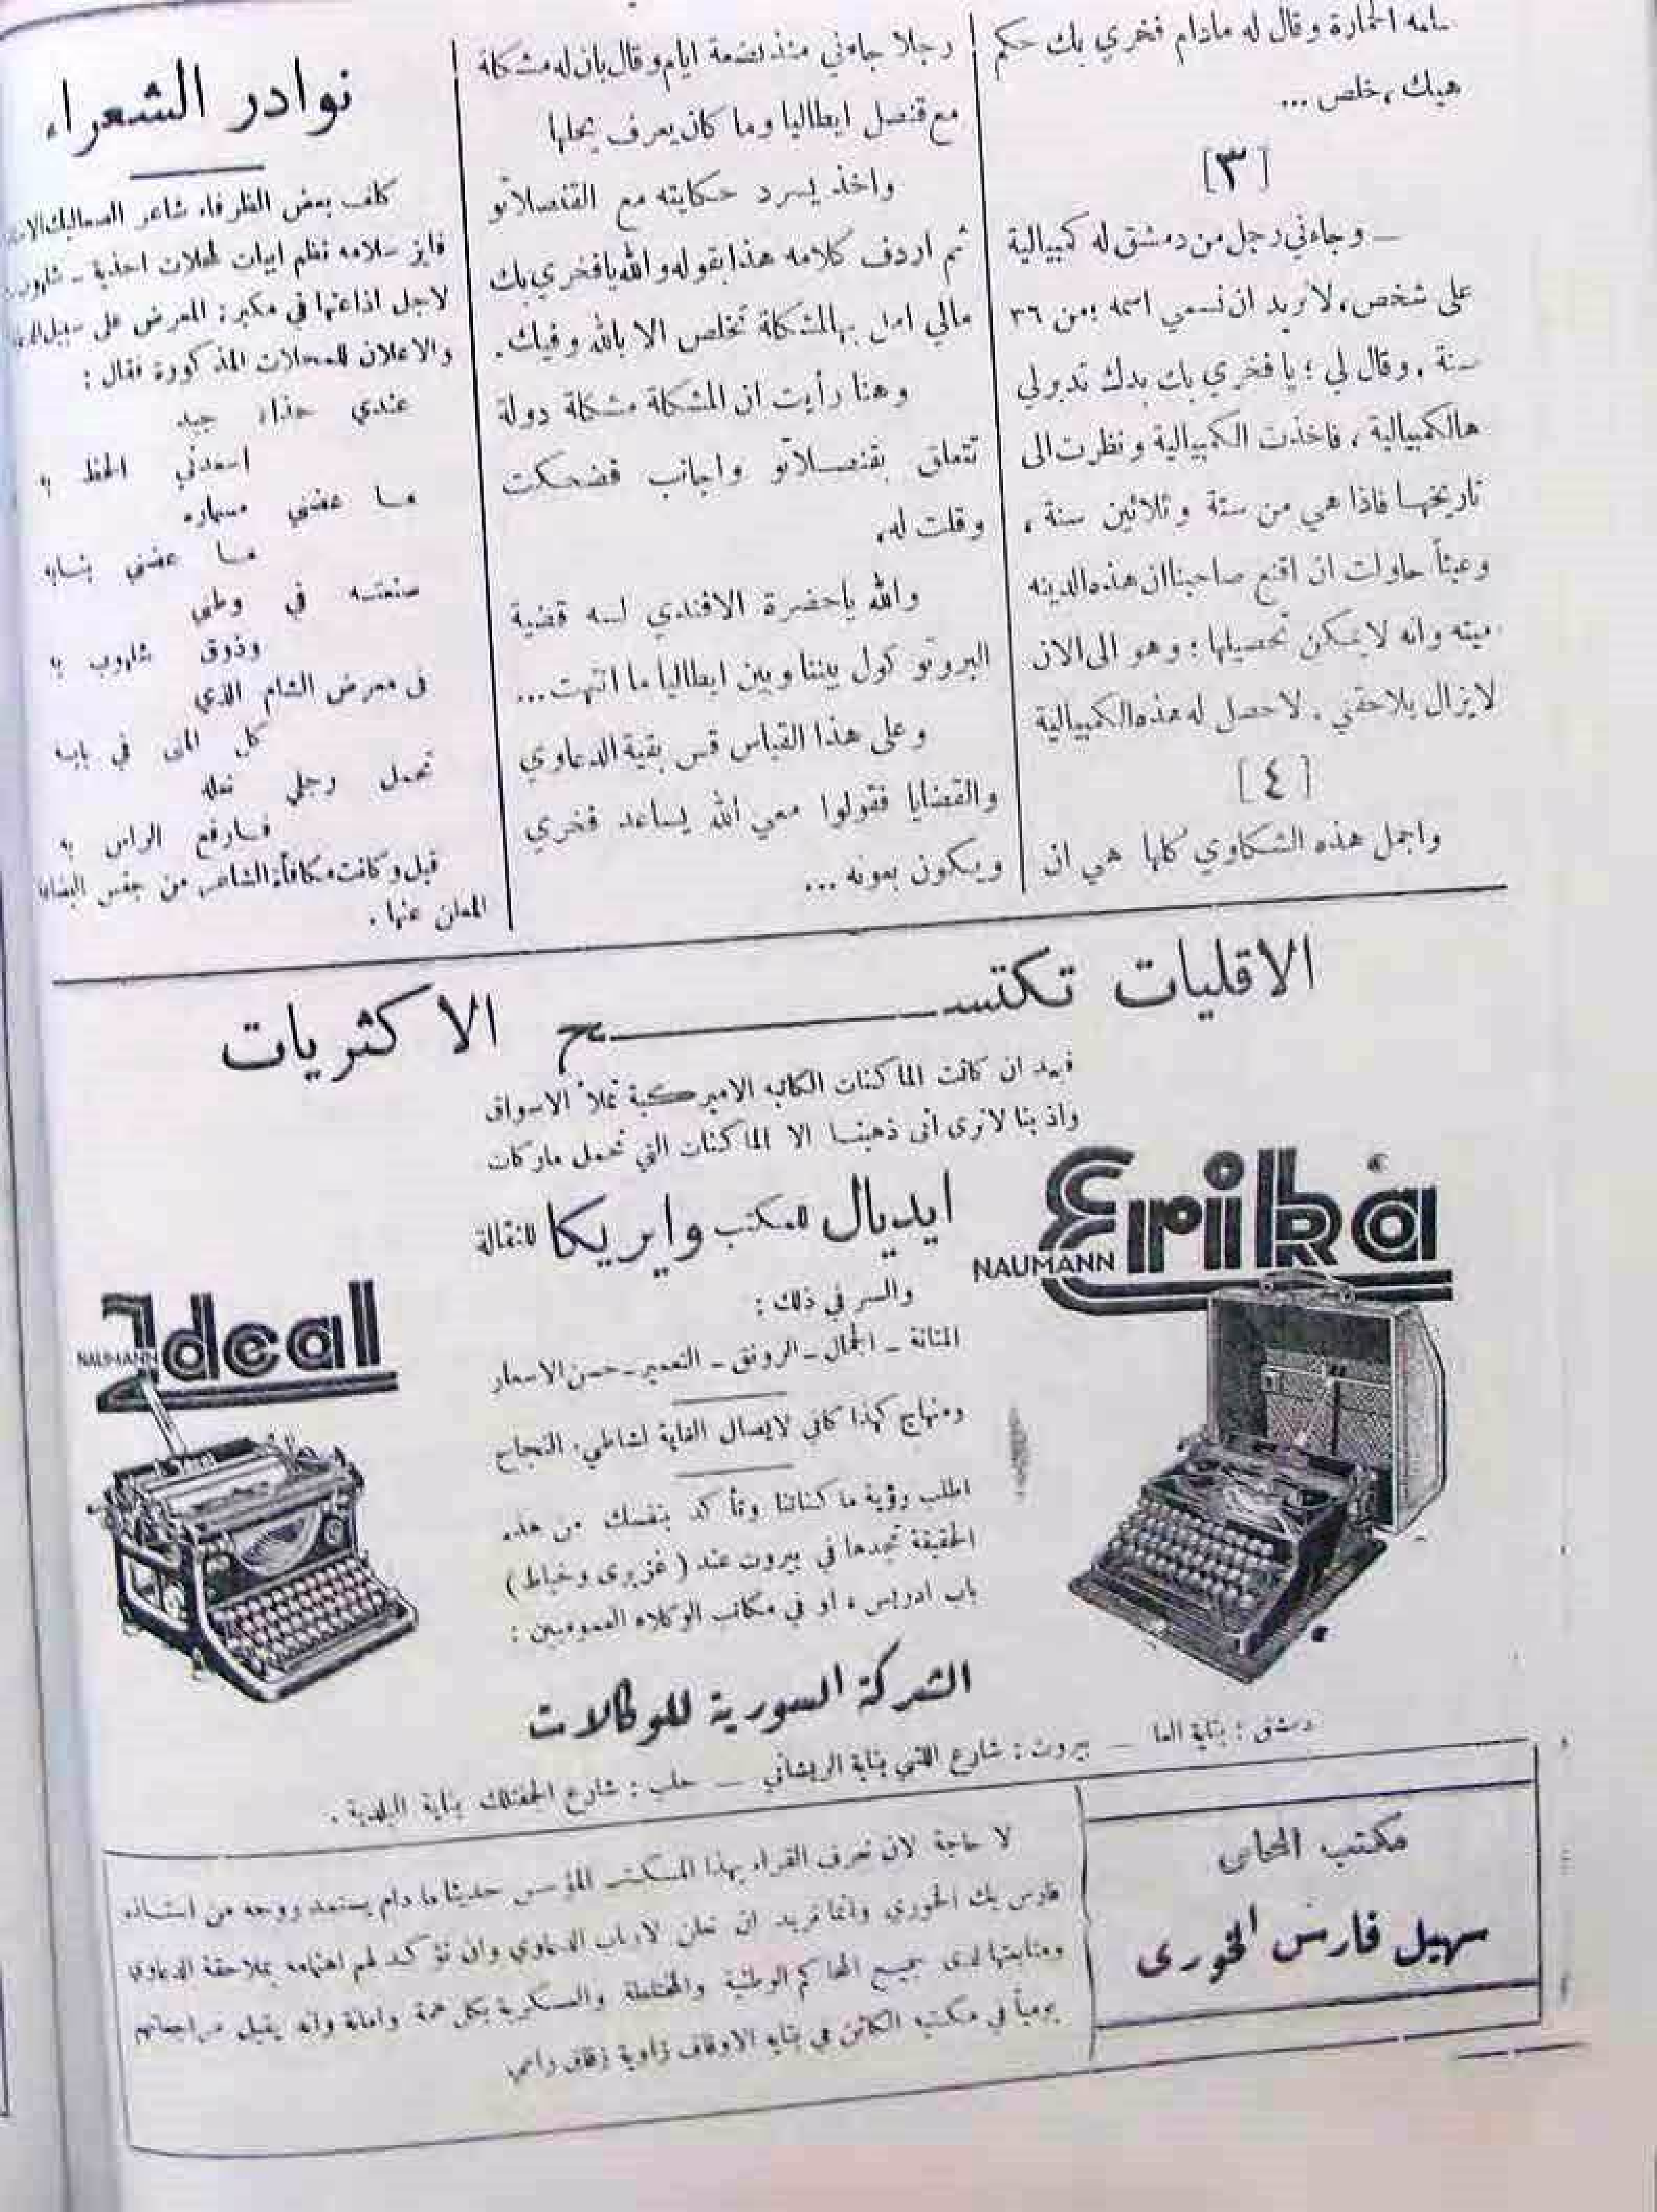 سامه الخمارة وقال له مادام فخري بك حكم
هيك، خلص ...
[٣]
— وجاءني رجل من دمشق له كمبيالية
على شخص، لا نريد ان نسمي اسمه من ٣٦
سنة. وقال لي ؛ يا فخري بك بدك تدبر لي
هالكمبيالية ، فاخذت الكمبيالية ونظرت الى
تاريخها فاذا هي من ستة وثلاثين سنة ،
وعبثاً حاولت ان اقنع صاحبنا ان هذه الدينه
ميته وانه لا يمكن تحصيلها ؛ وهو الى الان
لا يزال يلاحقني . لاحصل له هذه الكمبيالية
[٤]
واجمل هذه الشكاوي كلها هي ان
رجلا جاءني منذ بضعة ايام وقال بان له مشكلة
مع قنصل ايطاليا وما كان يعرف يحلها
واخذ يسرد حكايته مع القنصلاتو
ثم اردف كلامه هذا بقوله والله يا فخري بك
مالي امل بهالمشكلة تخلص الا بالله وفيك .
وهنا رأيت ان المشكلة مشكلة دولة
تتعلق بقنصلاتو واجانب فضحكت
وقلت له،
والله يا حضرة الافندي لسه قضية
البروتو كول بيننا وبين ايطاليا ما انتهت ...
وعلى هذا القياس قس بقية الدعاوي
والقضايا فقولوا معي الله يساعد فخري
ويكون بعونه ...
نوادر الشعراء
كلف بعض الظرفاء شاعر الصعاليك
فايز سلامه نظم ابيات لمحلات احذية — شاهوب
لاجل اذاعتها في مكبر المعرض على سبيل
والاعلان للمحلات المذكورة فقال :
عندي حذاء جيد
اسعدني الحظ به
ما عضني مسماره
ما عضني بنابه
صنعته في وطني
وذوق شاهوب به
فى معرض الشام الذي
كل المنى في بابه
تحمل رجلي نعله
فارفع الراس به
قيل وكانت مكافأة الشاعر من جنس
المعلن عنها .
الاقليات تكتسـح الاكثريات
فبعد ان كانت الماكنات الكاتبه الاميركية تملأ الاسواق
واذ بنا لا نرى انى ذهبنا الا الماكنات التي تحمل ماركات
ايديال للمكتب وايريكا للنقالة
Erika
NAUMANN
Ideal
NAUMANN
والسر في ذلك :
المتانة — الجمال — الرونق — التعمير — حسن الاسعار
ومنهاج كهذا كافي لايصال الغاية لشاطىء النجاح
اطلب رؤية ماكناتنا وتأكد بنفسك من هذه
الحقيقة تجدها في بيروت عند ( غزيرى وخياط )
باب ادريس ، او في مكاتب الوكلاء العموميين :
الشركة السورية للوكالات
دمشق : بناية العا — بيروت : شارع اللنبي بناية الريشاني — حلب : شارع الجفتلك بناية البلدية .
مكتب المحامى
سهيل فارس الخورى
لا حاجة لان نعرف القراء بهذا المكتب المؤسس حديثا ما دام يستمد روحه من استاذه
فارس بك الخوري وانما نريد ان نعلن لارباب الدعاوي وان نؤكد لهم اهتمامه بملاحقة الدعاوي
ومتابعتها لدى جميع المحاكم الوطنية والمختلطة والعسكرية بكل همة وامانة وانه يقبل مراجعاتهم
يومياً في مكتبه الكائن في بناية الاوقاف زاوية زقاق رامي